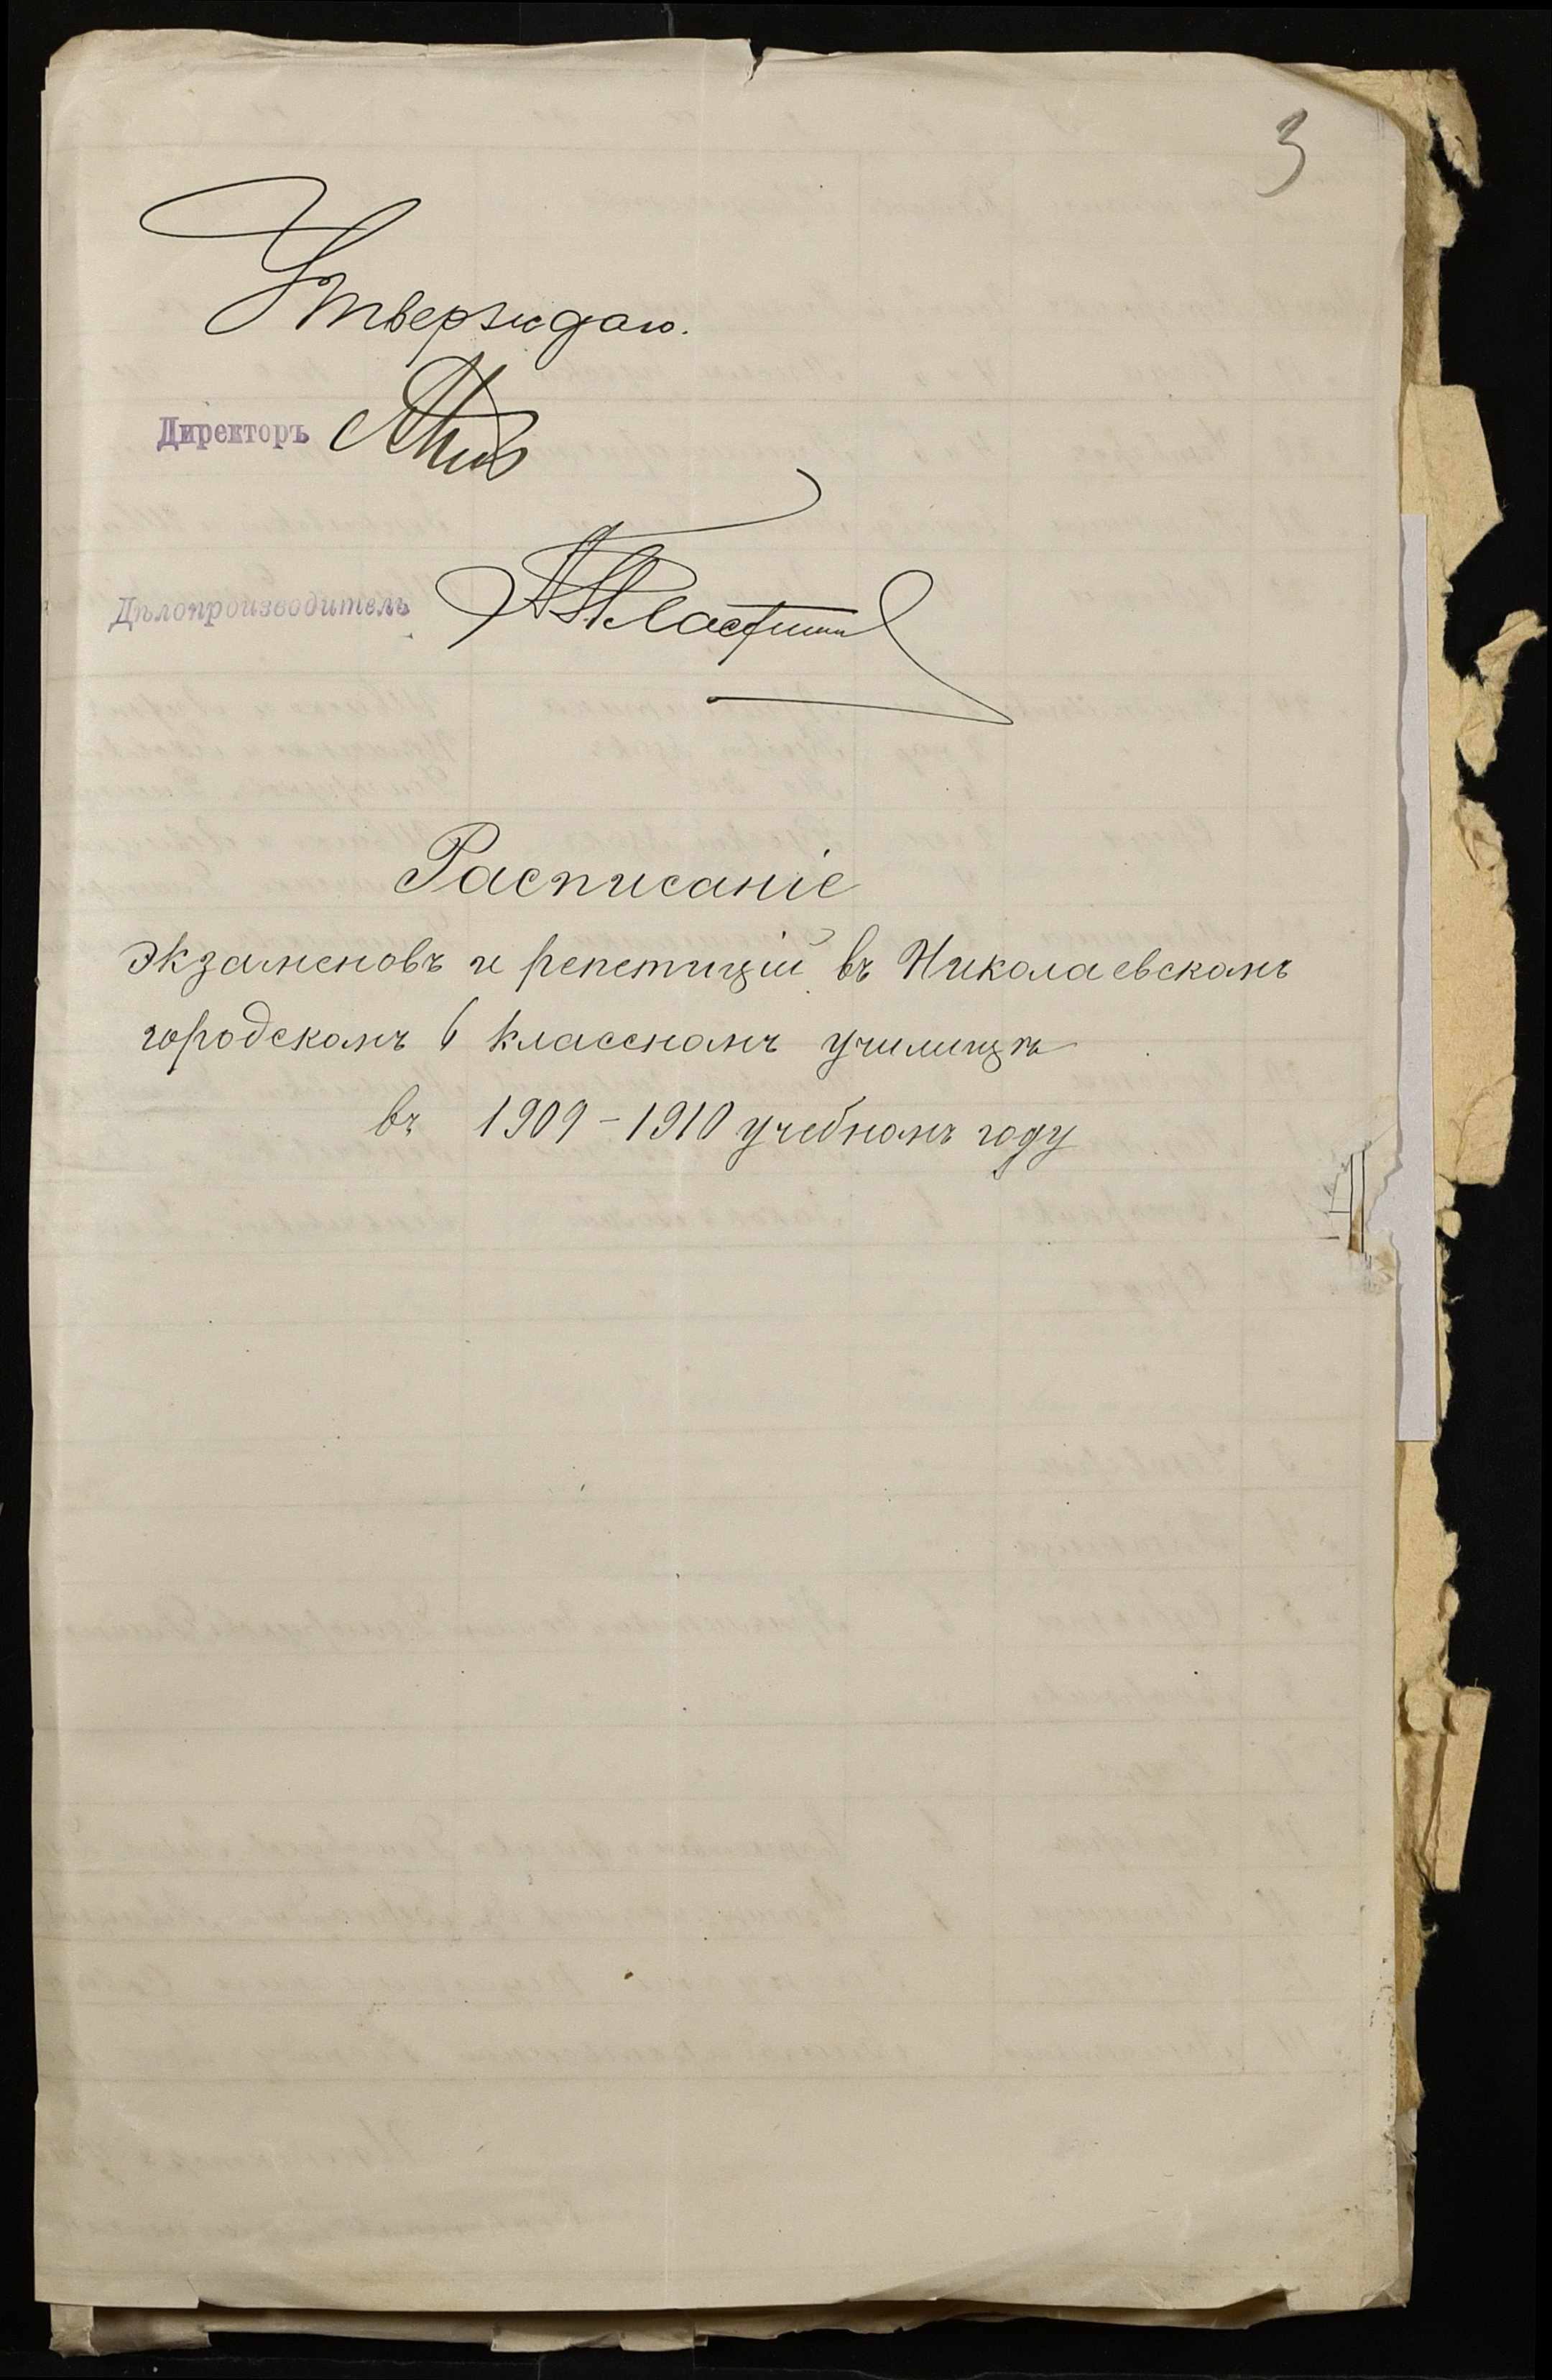 3
Утверждаю.
Директоръ
Дѣлопроизводитель
Расписаніе
экзаменовъ и репетицій въ Николаевскомъ
городскомъ 6 классномъ училищѣ
въ 1909-1910 учебномъ году